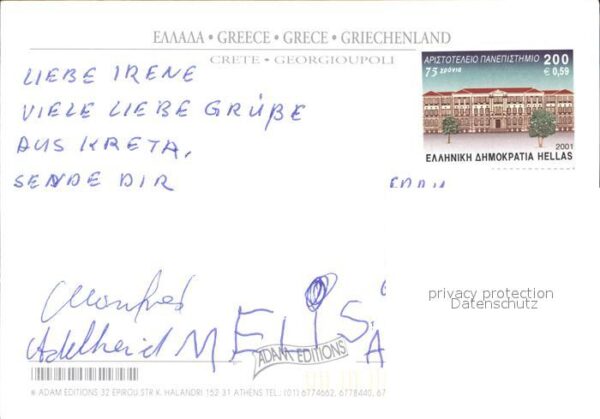 ΕΛΛΑΔΑ • GREECE • GRECE • GRIECHENLAND
CRETE • GEORGIOUPOLI
ΑΡΙΣΤΟΤΕΛΕΙΟ ΠΑΝΕΠΙΣΤΗΜΙΟ 200
75 χρόνια € 0,59
2001
ΕΛΛΗΝΙΚΗ ΔΗΜΟΚΡΑΤΙΑ HELLAS
LIEBE IRENE
VIELE LIEBE GRÜßE
AUS KRETA,
SENDE DIR
privacy protection
Datenschutz
Manfred
Adelheid M ELiS. A
ADAM EDITIONS
® ADAM EDITIONS 32 EPIROU STR K. HALANDRI 152 31 ATHENS TEL.: (01) 6774662, 6778440,